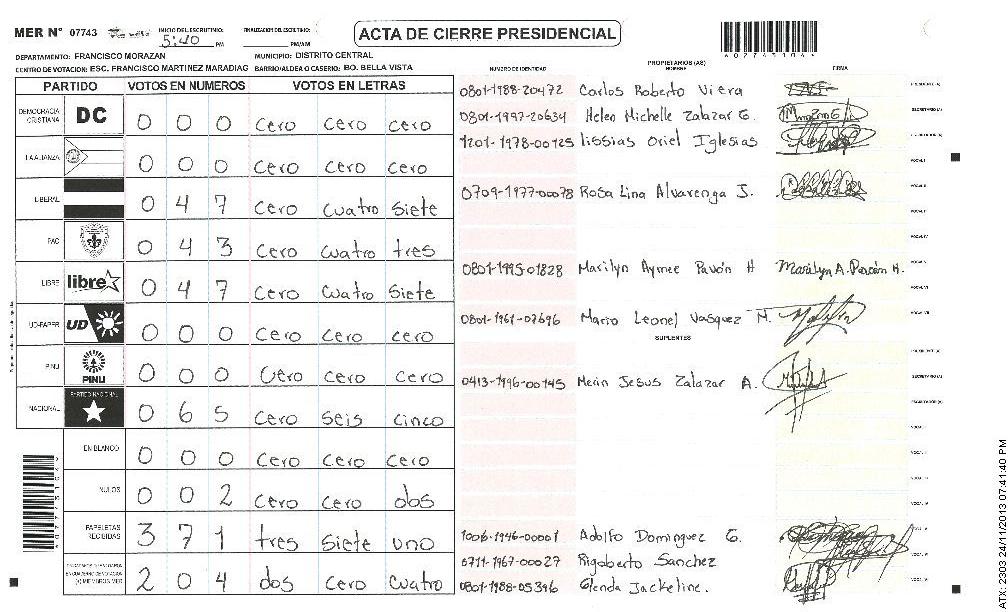 MER N° 07743
INICIO DEL ESCRUTINIO: 5:40 PM
FINALIZACION DEL ESCRUTINIO: PM/AM
ACTA DE CIERRE PRESIDENCIAL
*07743104*
DEPARTAMENTO: FRANCISCO MORAZAN
MUNICIPIO: DISTRITO CENTRAL
CENTRO DE VOTACION: ESC. FRANCISCO MARTINEZ MARADIAG BARRIO/ALDEA O CASERIO: BO. BELLA VISTA
PARTIDO VOTOS EN NUMEROS VOTOS EN LETRAS
DEMOCRACIA CRISTIANA DC 0 0 0 cero cero cero
LA ALIANZA 0 0 0 cero cero cero
LIBERAL 0 4 7 cero cuatro siete
PAC 0 4 3 cero cuatro tres
LIBRE libre 0 4 7 cero cuatro siete
UD-FAPER UD 0 0 0 cero cero cero
PINU PINU 0 0 0 cero cero cero
NACIONAL PARTIDO NACIONAL 0 6 5 cero seis cinco
EN BLANCO 0 0 0 cero cero cero
NULOS 0 0 2 cero cero dos
PAPELETAS RECIBIDAS 3 7 1 tres siete uno
(+) MIEMBROS MER 2 0 4 dos cero cuatro
NUMERO DE IDENTIDAD PROPIETARIOS (AS) NOMBRE FIRMA
0801-1988-20472 Carlos Roberto Viera
0801-1997-20634 Helen Michelle Zalazar G.
1201-1978-00125 lissias Oriel Iglesias
0709-1977-00078 Rosa Lina Alvarenga J.
0801-1995-01828 Marilyn Aymee Pavón H Marilyn A. Pavón H.
0801-1961-07696 Mario Leonel Vasquez M.
SUPLENTES
0413-1996-00145 Merin Jesus Zalazar A.
1006-1946-00001 Adolfo Dominguez G.
0711-1967-00027 Rigoberto Sanchez
0801-1988-05396 Glenda Jackeline.
ATX: 2303 24/11/2013 07:41:40 PM